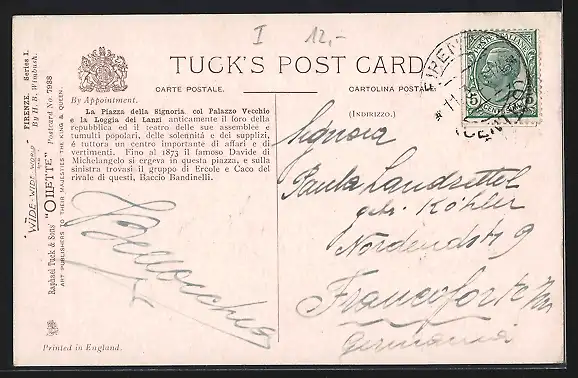 I 12,-
TUCK'S POST CARD
CARTE POSTALE.
CARTOLINA POSTALE.
By Appointment.
(INDIRIZZO.)
La Piazza della Signoria, col Palazzo Vecchio
e la Loggia dei Lanzi anticamente il foro della
repubblica ed il teatro delle sue assemblee e
tumulti popolari, delle solennità e dei supplizi,
é tuttora un centro importante di affari e di
vertimenti. Fino al 1873 il famoso Davide di
Michelangelo si ergeva in questa piazza, e sulla
sinistra trovasi il gruppo di Ercole e Caco del
rivale di questi, Baccio Bandinelli.
FIRENZE. Series I.
By H. B. Wimbush.
WIDE-WIDE-WORLD
Raphael Tuck & Sons' "OILETTE" Postcard No. 7938
ART PUBLISHERS TO THEIR MAJESTIES THE KING & QUEEN.
Printed in England.
Signora
Paula Landsettel
geb. Köhler
Nordendstr 9
Francoforte
Germania